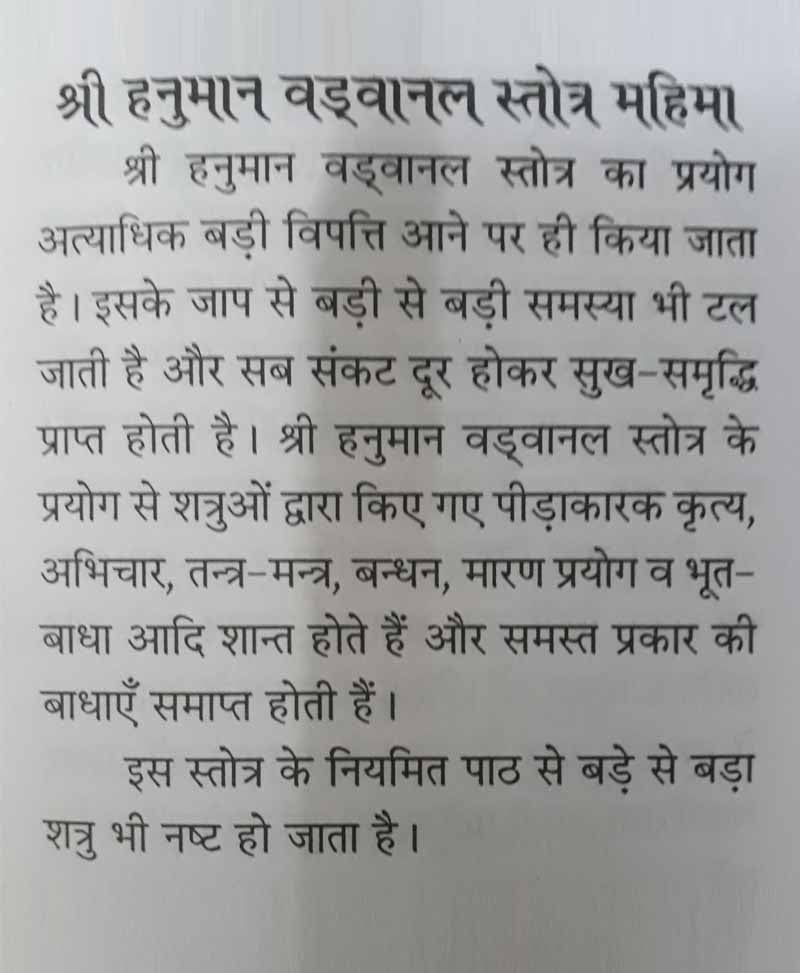 श्री हनुमान वड्वानल स्तोत्र महिमा
श्री हनुमान वड्वानल स्तोत्र का प्रयोग
अत्याधिक बड़ी विपत्ति आने पर ही किया जाता
है। इसके जाप से बड़ी से बड़ी समस्या भी टल
जाती है और सब संकट दूर होकर सुख-समृद्धि
प्राप्त होती है। श्री हनुमान वड्वानल स्तोत्र के
प्रयोग से शत्रुओं द्वारा किए गए पीड़ाकारक कृत्य,
अभिचार, तन्त्र-मन्त्र, बन्धन, मारण प्रयोग व भूत-
बाधा आदि शान्त होते हैं और समस्त प्रकार की
बाधाएँ समाप्त होती हैं।
इस स्तोत्र के नियमित पाठ से बड़े से बड़ा
शत्रु भी नष्ट हो जाता है।